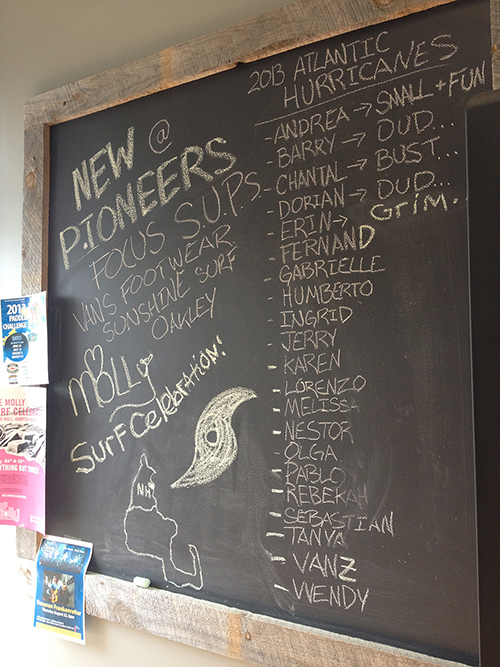 NEW @
PIONEERS
FOCUS S.U.P.s
VANS FOOTWEAR
SUNSHINE SURF
OAKLEY
MOLLY
SURF CELEBRATION!
NH
2013 ATLANTIC
HURRICANES
- ANDREA → SMALL + FUN
- BARRY → DUD...
- CHANTAL → BUST...
- DORIAN → DUD...
- ERIN → GRIM.
- FERNAND
- GABRIELLE
- HUMBERTO
- INGRID
- JERRY
- KAREN
- LORENZO
- MELISSA
- NESTOR
- OLGA
- PABLO
- REBEKAH
- SEBASTIAN
- TANYA
- VANZ
- WENDY
2013
PADDLE
CHALLENGE
MOLLY
Donavon Frankenreiter